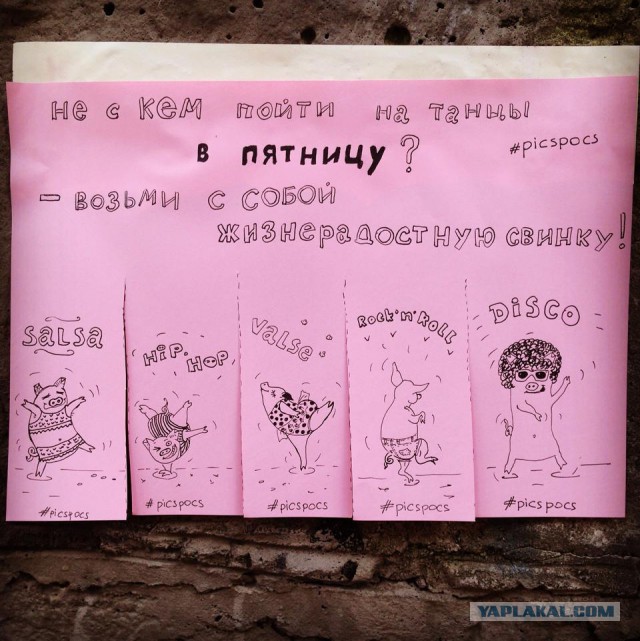 не с кем пойти на танцы
в пятницу?
#picspocs
- возьми с собой
жизнерадостную свинку!
SALSA
HIP-HOP
VALSE
ROCK'N'ROLL
DISCO
#picspocs
#picspocs
#picspocs
#picspocs
#picspocs
YAPLAKAL.COM